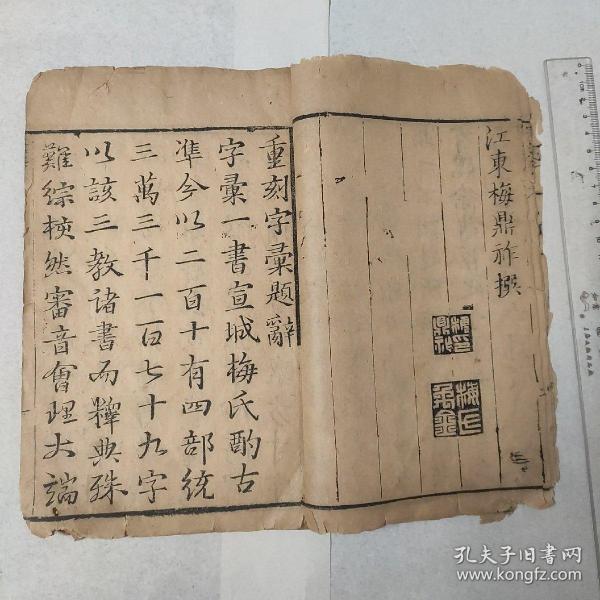 江東梅鼎祚撰
重刻字彙題辭
字彙一書宣城梅氏酌古
準今以二百十有四部統
三萬三千一百七十九字
以該三教諸書而釋典殊
難綜核然審音會理大端
孔夫子旧书网
www.kongfz.com